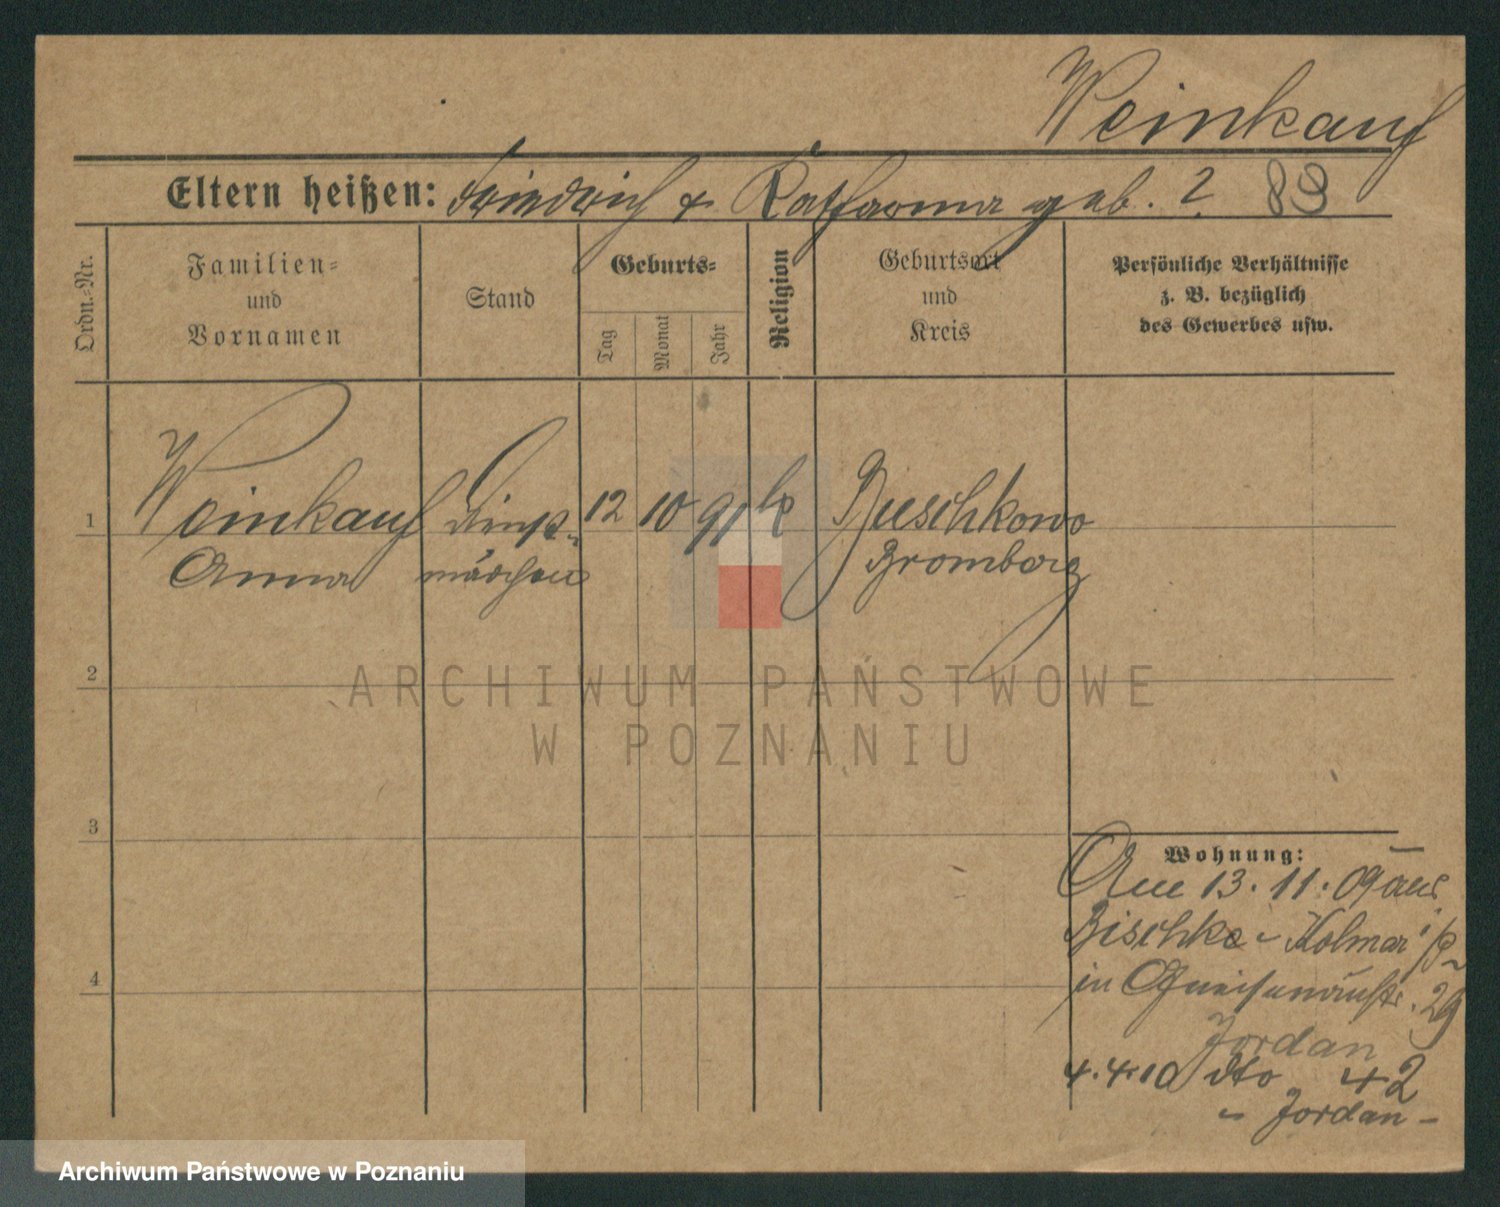 Weinkauf
Eltern heißen: Friedrich & Katharina geb. ? 83
Ordn.-Nr.
Familien-
und
Vornamen
Stand
Geburts-
Tag
Monat
Jahr
Religion
Geburtsort
und
Kreis
Persönliche Verhältnisse
z. B. bezüglich
des Gewerbes usw.
1 Weinkauf Dienst- 12 10 91 k Buschkowo
Anna mädchen Bromberg
2
ARCHIWUM PAŃSTWOWE
W POZNANIU
3
4
Wohnung:
Am 13. 11. 09 aus
Bischke - Kolmar i/P
in Gneisenaustr. 29
Jordan
4. 4. 10 dto 42
Jordan -
Archiwum Państwowe w Poznaniu